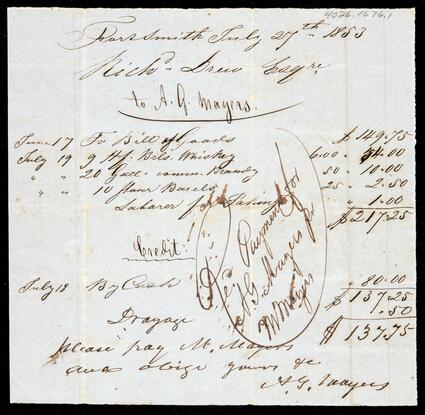 4026.1676.1
Fort Smith July 27th 1853
Richd Drew Esqre
to A. G. Mayers.
June 17 To Bill of Goods $ 149.75
July 19 9 Hf. Bbls. Whiskey 6.00 " 54.00
" " 20 Gall. comm. Brandy 50 " 10.00
" " 10 flour Barels 25 " 2.50
Laborer for " 1.00
$ 217.25
Credit.
July 18 By Cash " 80.00
$ 137.25
Drayage .50
$ 137.75
Please pay M. Mayers
and oblige yours &c
A. G. Mayers
Payment for
A G Mayers pr
M Mayers